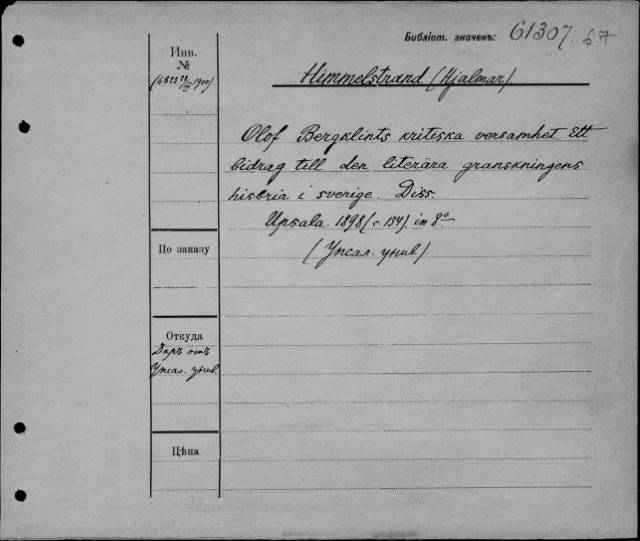 Библіот. значекъ: 61307 67
Инв.
№
(6823 29/III 1900)
Himmelstrand (Hjalmar)
Olof Bergklints kritiska versamhet Ett
bidrag till den literära granskningens
historia i sverige. Diss.
Upsala. 1898 (с. 154). in 8º
(Упсал. унив.)
По заказу
Откуда
Даръ отъ
Упсал. унив.
Цѣна